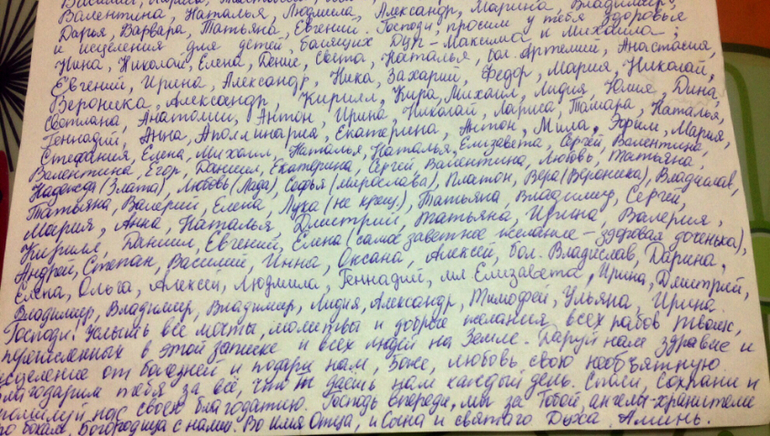 Валентина, Наталья, Людмила, Александр, Марина, Владимир,
Дарья, Варвара, Татьяна, Евгений. Господи, просим у тебя здоровья
и исцеления для детей, болящих ДЦП - Максима и Михаила;
Нина, Николай, Елена, Денис, Света, Наталья, бол. Артемий, Анастасия,
Евгений, Ирина, Александр, Ника, Захарий, Федор, Мария, Николай,
Вероника, Александр, Кирилл, Кира, Михаил, Лидия, Юлия, Дина,
Светлана, Анатолий, Антон, Ирина, Николай, Лариса, Тамара, Наталья,
Геннадий, Анна, Аполлинария, Екатерина, Антон, Мила, Ефим, Мария,
Стефания, Елена, Михаил, Наталья, Наталья, Елизавета, Сергей, Валентина,
Валентина, Егор, Даниил, Екатерина, Сергей, Валентина, Любовь, Татьяна
Надежда (Злата), Любовь (Лада), Софья (Мирослава), Платон, Вера (Вероника), Владислав,
Татьяна, Валерий, Елена, Лука (не крещ), Татьяна, Владимир, Сергей,
Мария, Анна, Наталья, Дмитрий, Татьяна, Ирина, Валерия,
Кирилл, Даниил, Евгений, Елена (самое заветное желание - здоровая доченька),
Андрей, Степан, Василий, Инна, Оксана, Алексей, бол. Владислав, Дарина,
Елена, Ольга, Алексей, Людмила, Геннадий, мл Елизавета, Ирина, Дмитрий,
Владимир, Владимир, Владимир, Лидия, Александр, Тимофей, Ульяна, Ирина.
Господи! Услышь все мольбы, молитвы и добрые желания всех рабов твоих,
перечисленных в этой записке и всех людей на Земле. Даруй нам здравие и
исцеление от болезней и подари нам, Боже, любовь свою необъятную.
Благодарим тебя за все, что ты даешь нам каждый день. Спаси, Сохрани и
помилуй нас своею благодатию. Господь впереди, мы за Тобой, ангелы-хранители
по бокам, Богородица с нами. Во имя Отца, и Сына и святаго Духа. Аминь.